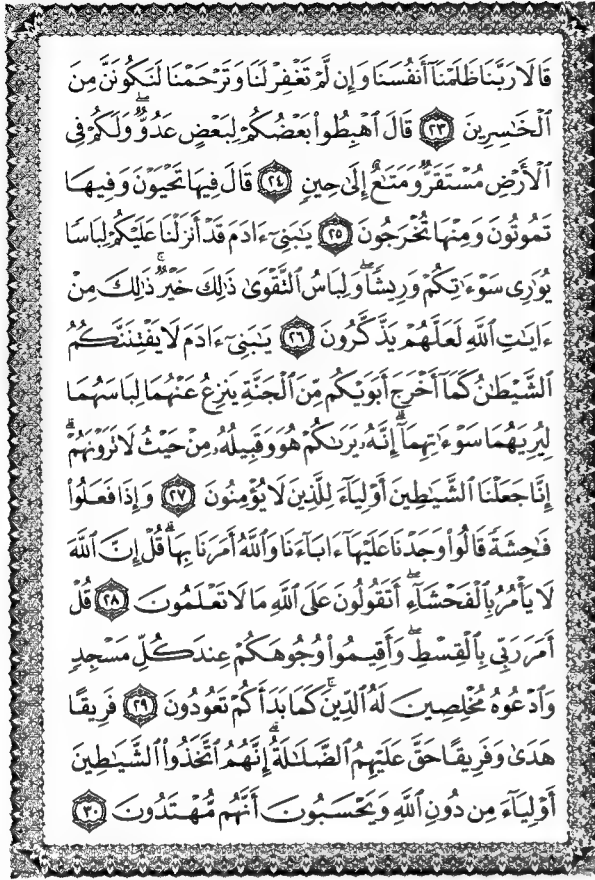 قَالَا رَبَّنَا ظَلَمْنَآ أَنفُسَنَا وَإِن لَّمْ تَغْفِرْ لَنَا وَتَرْحَمْنَا لَنَكُونَنَّ مِنَ
ٱلْخَٰسِرِينَ ٢٣ قَالَ ٱهْبِطُوا۟ بَعْضُكُمْ لِبَعْضٍ عَدُوٌّ ۖ وَلَكُمْ فِى
ٱلْأَرْضِ مُسْتَقَرٌّ وَمَتَٰعٌ إِلَىٰ حِينٍ ٢٤ قَالَ فِيهَا تَحْيَوْنَ وَفِيهَا
تَمُوتُونَ وَمِنْهَا تُخْرَجُونَ ٢٥ يَٰبَنِىٓ ءَادَمَ قَدْ أَنزَلْنَا عَلَيْكُمْ لِبَاسًا
يُوَٰرِى سَوْءَٰتِكُمْ وَرِيشًا ۖ وَلِبَاسُ ٱلتَّقْوَىٰ ذَٰلِكَ خَيْرٌ ۚ ذَٰلِكَ مِنْ
ءَايَٰتِ ٱللَّهِ لَعَلَّهُمْ يَذَّكَّرُونَ ٢٦ يَٰبَنِىٓ ءَادَمَ لَا يَفْتِنَنَّكُمُ
ٱلشَّيْطَٰنُ كَمَآ أَخْرَجَ أَبَوَيْكُم مِّنَ ٱلْجَنَّةِ يَنزِعُ عَنْهُمَا لِبَاسَهُمَا
لِيُرِيَهُمَا سَوْءَٰتِهِمَآ ۗ إِنَّهُۥ يَرَىٰكُمْ هُوَ وَقَبِيلُهُۥ مِنْ حَيْثُ لَا تَرَوْنَهُمْ ۗ
إِنَّا جَعَلْنَا ٱلشَّيَٰطِينَ أَوْلِيَآءَ لِلَّذِينَ لَا يُؤْمِنُونَ ٢٧ وَإِذَا فَعَلُوا۟
فَٰحِشَةً قَالُوا۟ وَجَدْنَا عَلَيْهَآ ءَابَآءَنَا وَٱللَّهُ أَمَرَنَا بِهَا ۗ قُلْ إِنَّ ٱللَّهَ
لَا يَأْمُرُ بِٱلْفَحْشَآءِ ۖ أَتَقُولُونَ عَلَى ٱللَّهِ مَا لَا تَعْلَمُونَ ٢٨ قُلْ
أَمَرَ رَبِّى بِٱلْقِسْطِ ۖ وَأَقِيمُوا۟ وُجُوهَكُمْ عِندَ كُلِّ مَسْجِدٍ
وَٱدْعُوهُ مُخْلِصِينَ لَهُ ٱلدِّينَ ۚ كَمَا بَدَأَكُمْ تَعُودُونَ ٢٩ فَرِيقًا
هَدَىٰ وَفَرِيقًا حَقَّ عَلَيْهِمُ ٱلضَّلَٰلَةُ ۗ إِنَّهُمُ ٱتَّخَذُوا۟ ٱلشَّيَٰطِينَ
أَوْلِيَآءَ مِن دُونِ ٱللَّهِ وَيَحْسَبُونَ أَنَّهُم مُّهْتَدُونَ ٣٠